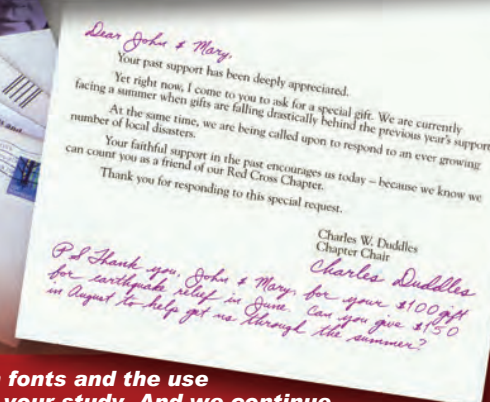 Dear John & Mary,
Your past support has been deeply appreciated.
Yet right now, I come to you to ask for a special gift. We are currently
facing a summer when gifts are falling drastically behind the previous year's support
At the same time, we are being called upon to respond to an ever growing
number of local disasters.
Your faithful support in the past encourages us today – because we know we
can count you as a friend of our Red Cross Chapter.
Thank you for responding to this special request.
Charles W. Duddles
Chapter Chair
Charles Duddles
P.S Thank you, John & Mary, for your $100 gift
for earthquake relief in June. Can you give $150
in August to help get us through the summer?
fonts and the use
your study. And we continue